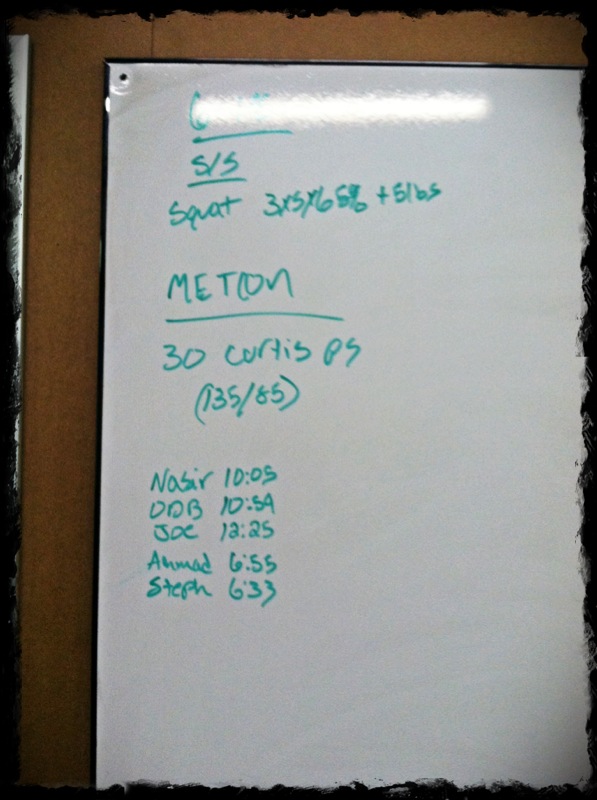 S/S
Squat 3x5x65% +5lbs
METCON
30 Curtis Ps
(135/85)
Nasir 10:05
DDB 10:59
JOE 12:25
Ahmad 6:55
Steph 6:33